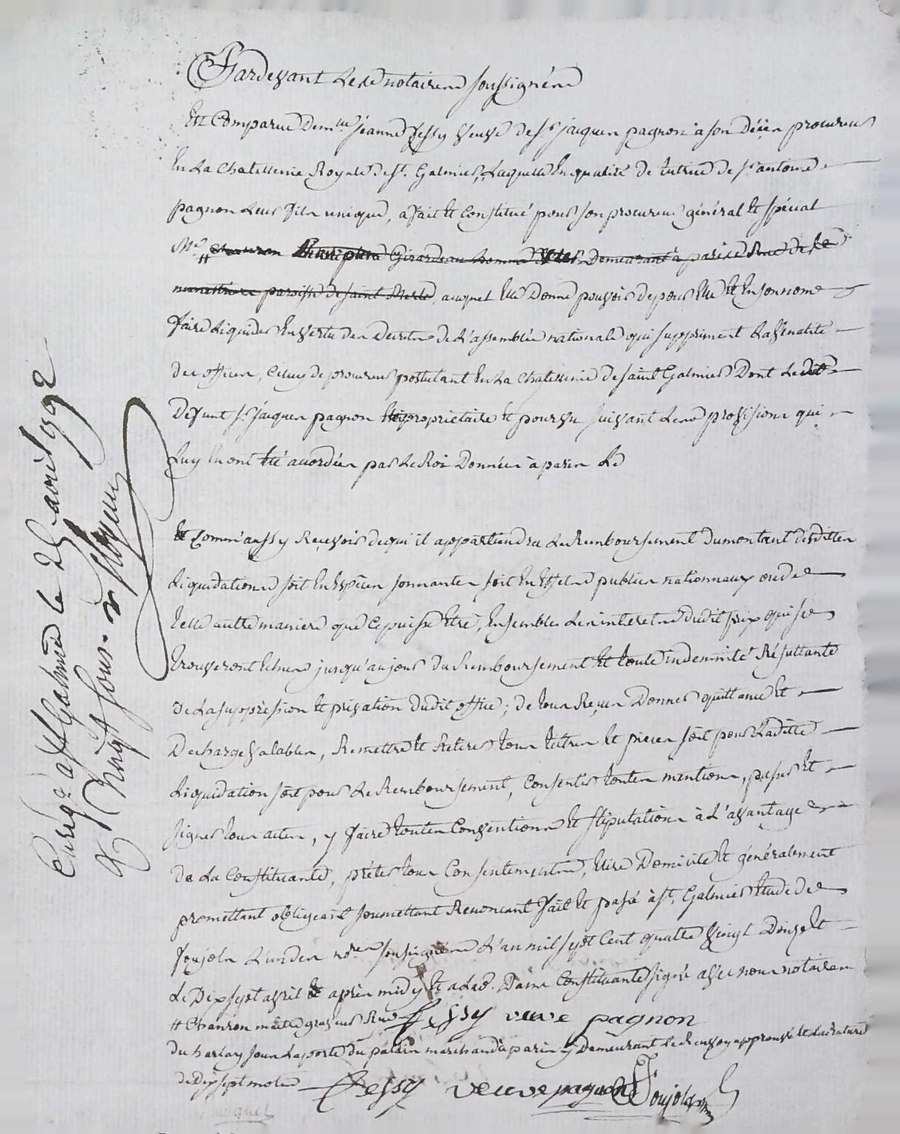 Pardevant Les notaires soussignés
Est Comparue dem.lle jeanne fessy veuve de s.r jacques pagnon a son décès procureur
En La Chatellenie Royale de s.t Galmier, Laquelle En qualité de tutrice de s.r antoine
pagnon Leur fils unique, a fait Et Constitué pour son procureur général Et spécial
M.e Girardeau homme demeurant à paris Rue de
paroisse de saint auquel Elle Donne pouvoir de pour Elle Et En son nom
faire Liquider En vertu des Decrets de L'assemblée nationale qui suppriment La vénalité
des offices, Celuy de procureur postulant En La Chatellenie de saint Galmier Dont Le dit
Deffunt s.r jacques pagnon propriétaire Et pourvu suivant Les provisions qui
Luy En ont été accordées par Le Roi Données à paris Le
Et Comm'aussy Recevoir de qui il appartiendra Le Remboursement du montant desdittes
Liquidations soit En Espèces sonnantes soit En Effets publics nationnaux ou de
telle autre maniere que ce puisse être, Ensembles Les interets dudit prix qui se
trouveront Echus jusqu'au jour du Remboursement Et toute indemnité Résultante
De La suppression Et privation dudit office; de tous Reçus Donner quittances Et
Decharges valables, Remettre Et Retirer tous titres Et pieces soit pour Laditte
Liquidation soit pour Le Remboursement, Consentir toutes mentions, passer Et
signer tous actes, y faire toutes Conventions Et stipulations à L'avantage
De La Constituante, prêter tous Consentements, Elire Domicile Et généralement
promettant obligeant soumettant Renoncant fait Et passé à s.t Galmier Etude de
Joujols L'un des no.res soussignés L'an mil sept Cent quatre vingt Douze Et
Le Dix sept avril après midy Et a Lad. Dame Constituante signé avec nous notaires
# Chanron maitre graveur Rue
fessy veuve pagnon
du harlay sous La porte du palais marchand à paris y Demeurant Le Renvoy approuvé Et La rature
de dix sept mots
fessy veuve pagnon Joujols
Enreg.é a s.t Galmier le 2 avril 1792
R. vingt sous